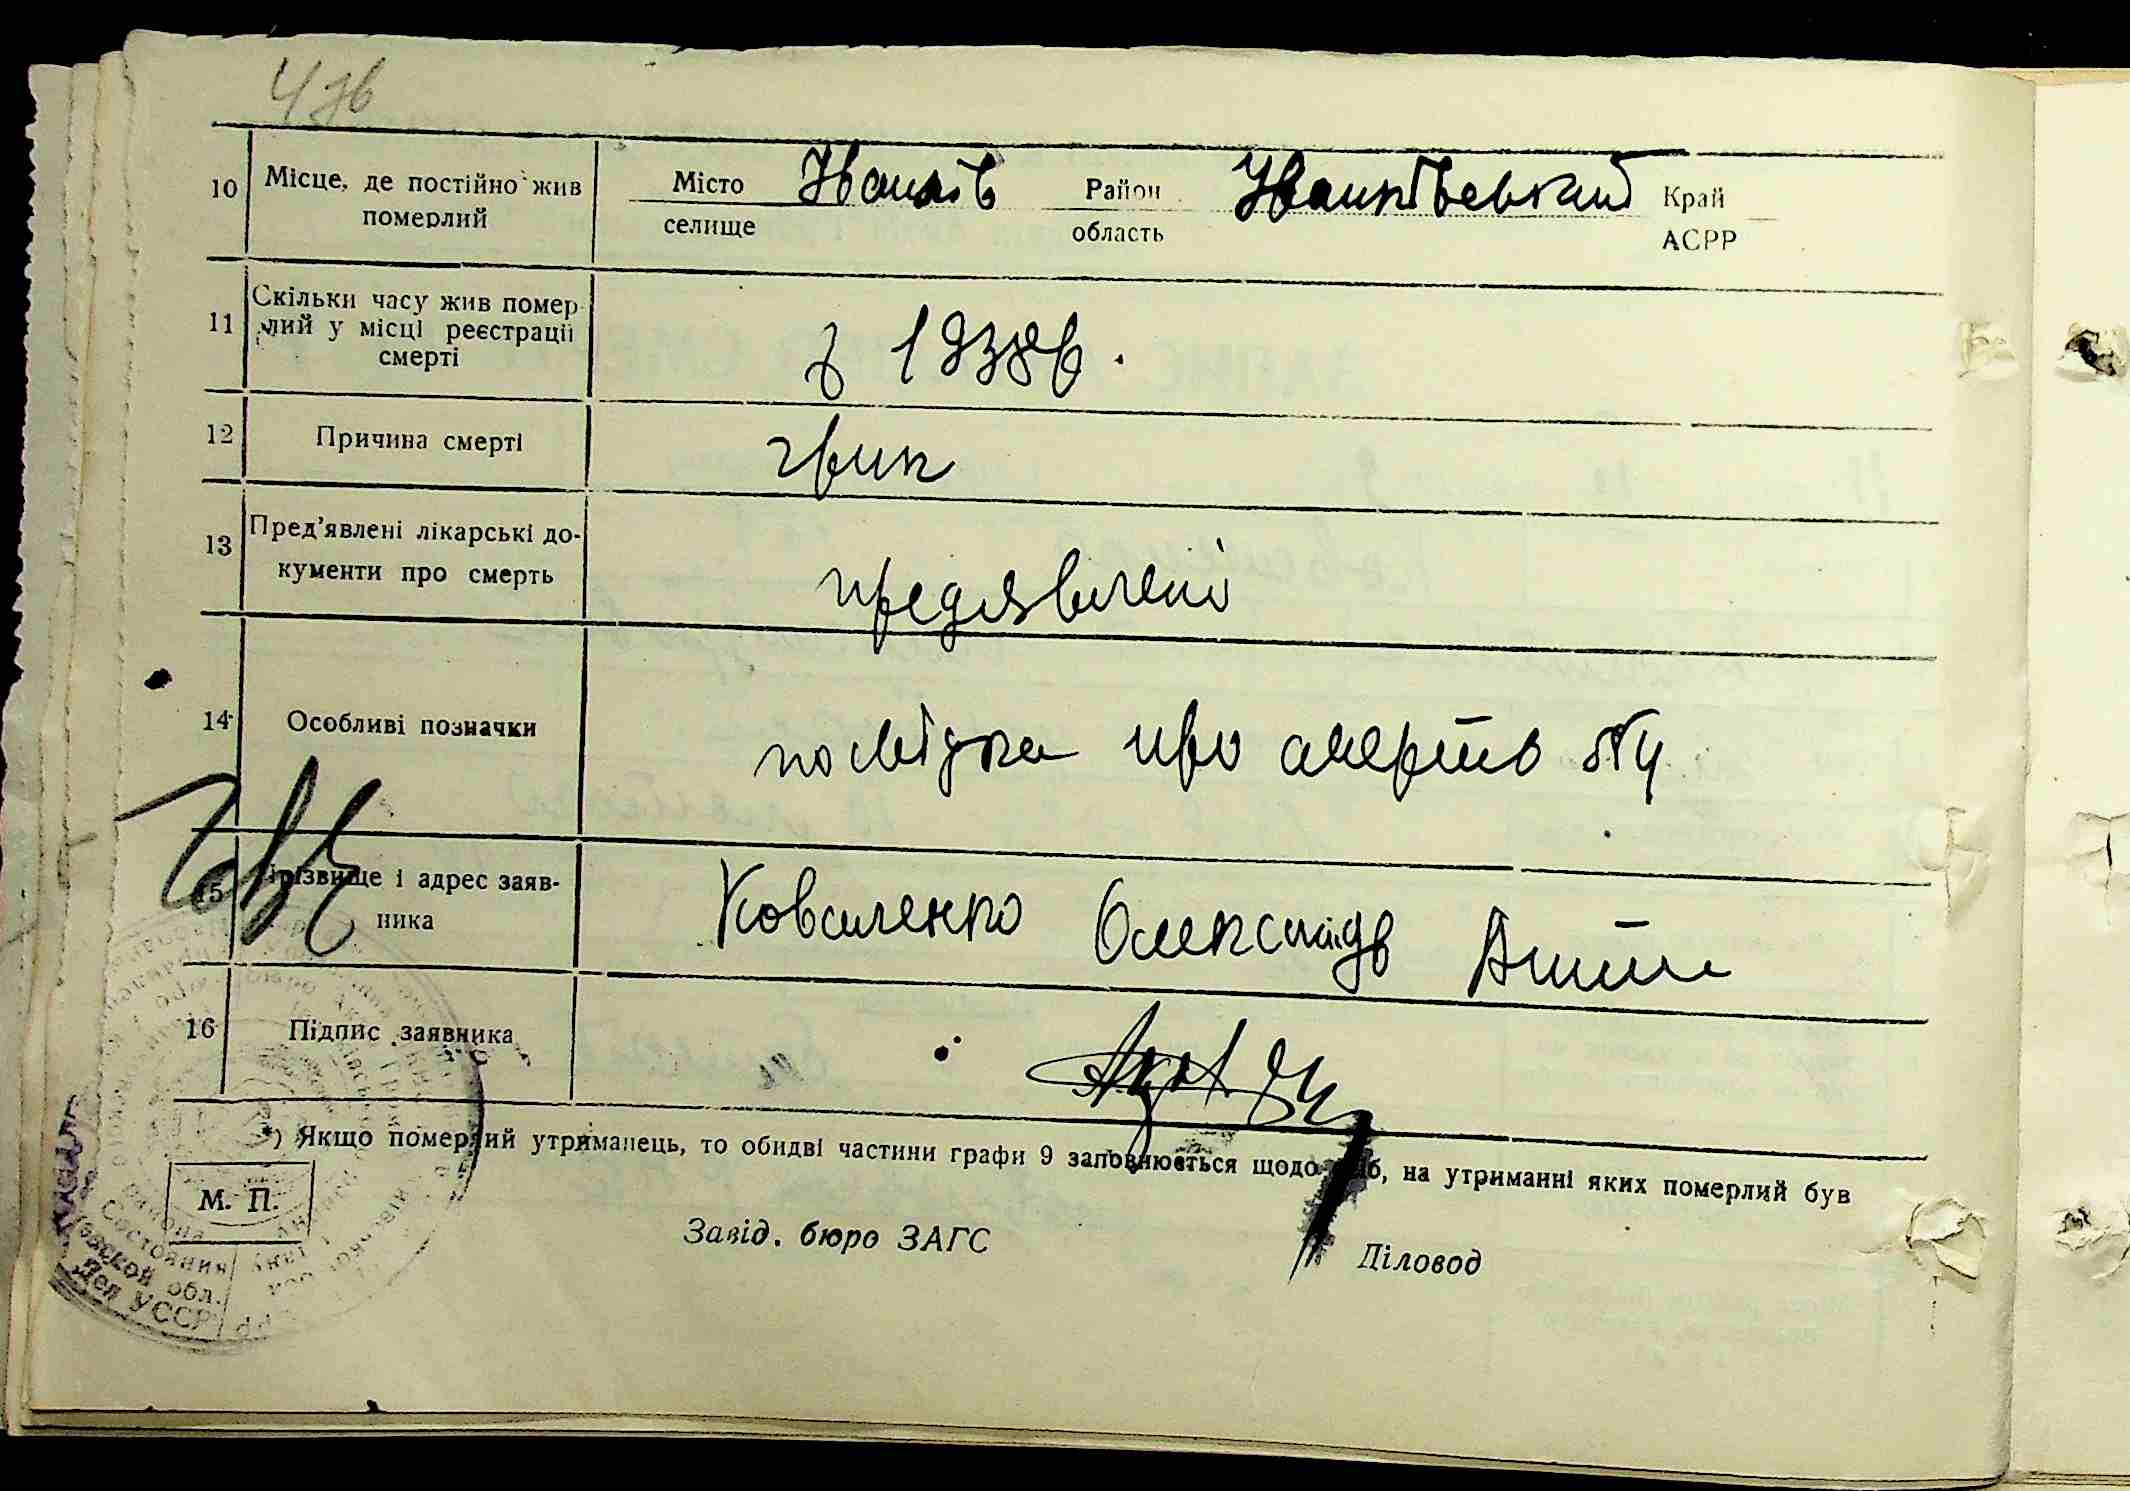 10 Місце, де постійно жив Місто Іванків Район Іванківський Край
померлий селище область АСРР
11 Скільки часу жив помер-
лий у місці реєстрації з 1938 р.
смерті
12 Причина смерті грип
13 Пред'явлені лікарські до-
кументи про смерть предявлені
14 Особливі позначки посвідка про смерть
15 Прізвище і адрес заяв- Коваленко Олександр
ника
16 Підпис заявника
*) Якщо померлий утриманець, то обидві частини графи 9 заповнюється щодо осіб, на утриманні яких померлий був
М. П.
Завід. бюро ЗАГС Діловод
Состояния
обл.
Дел УССР